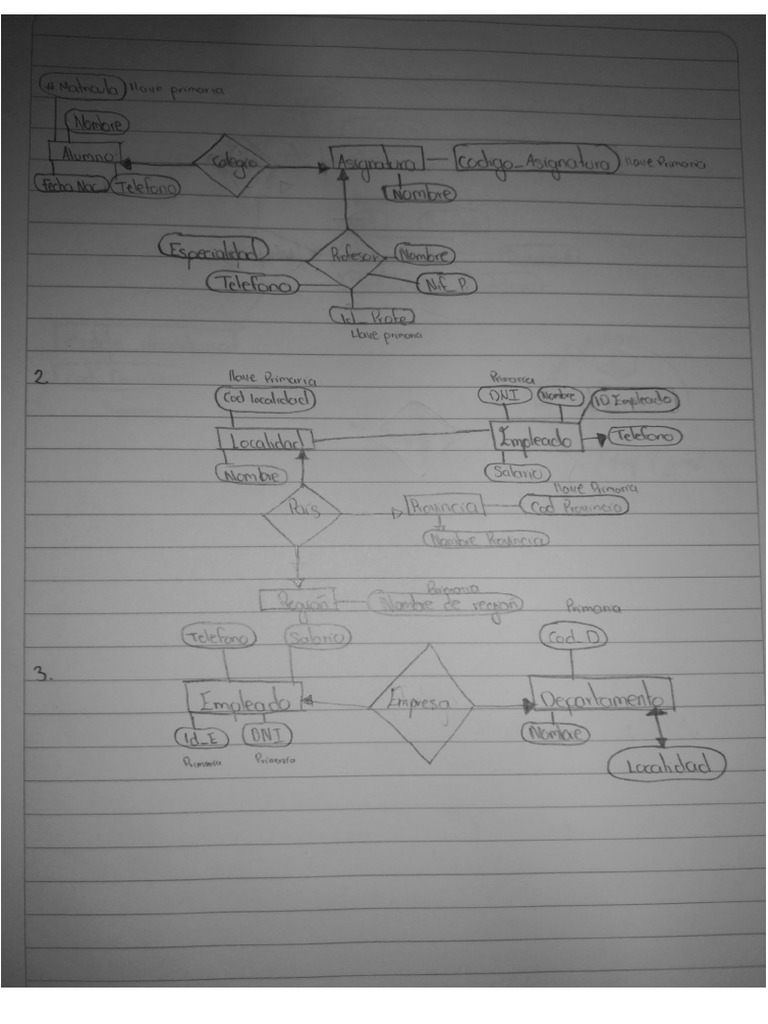 #Matricula llave primaria
Nombre
Alumno Colegio Asignatura Codigo_Asignatura llave Primaria
fecha Nac Telefono Nombre
Especialidad Profesor Nombre
Telefono Nif_P
Id_Profe
llave primaria
2.
llave Primaria Primaria
Cod localidad DNI Nombre ID Empleado
Localidad Empleado Telefono
Nombre Salario
llave Primaria
País Provincia Cod Provincia
Nombre Provincia
Primaria
Región Nombre de región Primaria
Telefono Salario Cod_D
3.
Empleado Empresa Departamento
Id_E DNI Nombre
Primaria Primaria
Localidad